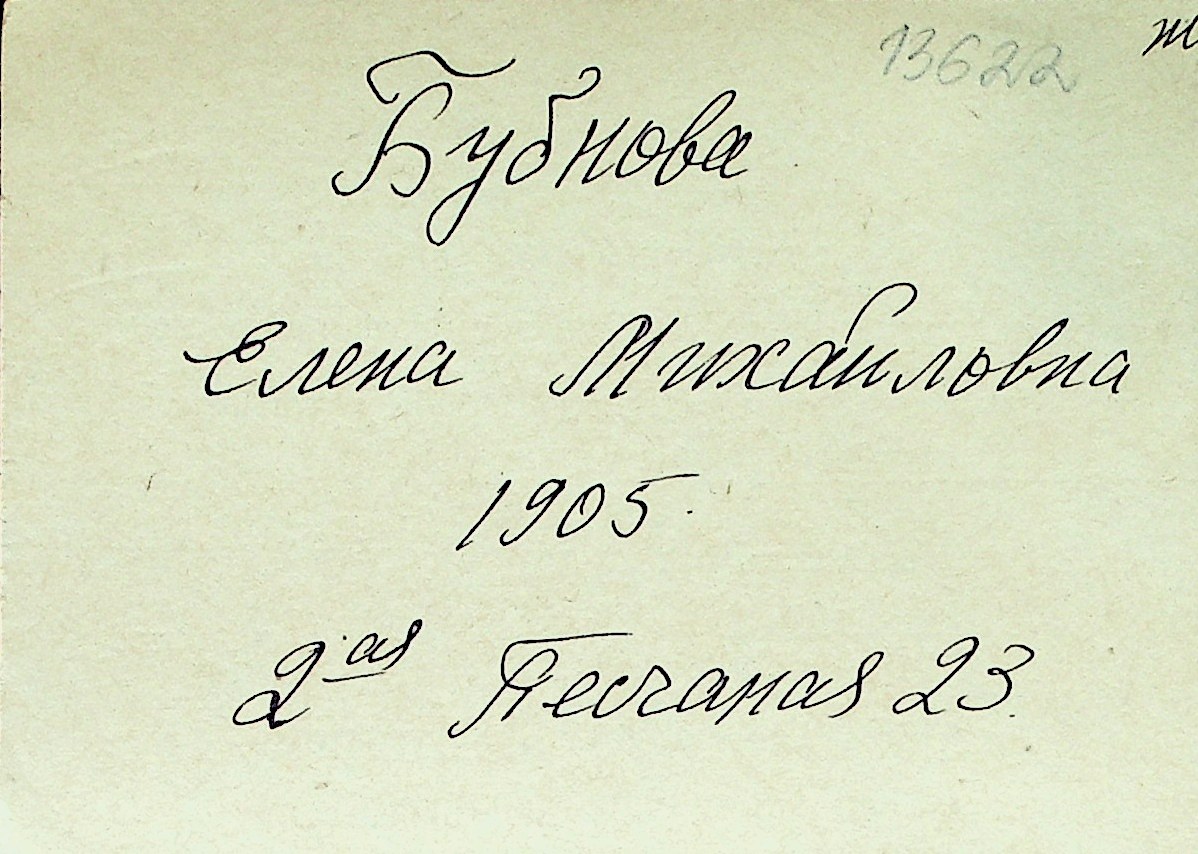 13622
Бубнова
Елена Михайловна
1905
2ая Песчаная 23